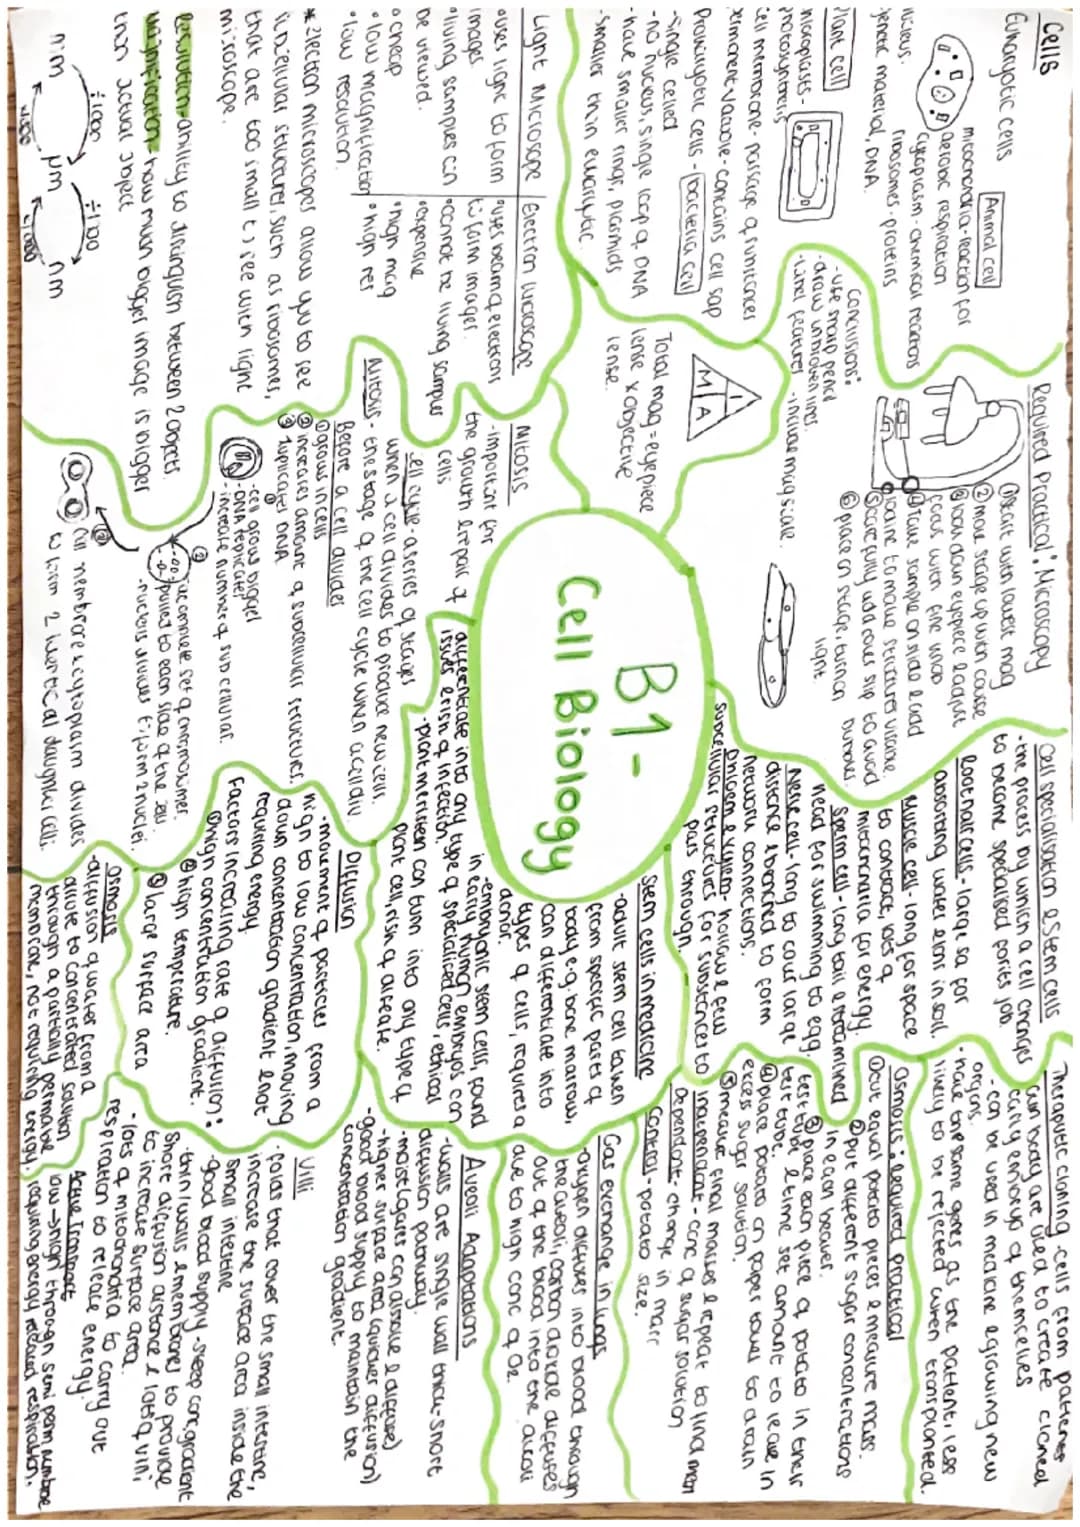 B1 -
Cell Biology
Cells
Eukaryotic cells
Animal cell
mitochondria - reaction for
aerobic respiration
cytoplasm - chemical reactions
ribosomes - proteins
genetic material, DNA.
Plant cell
photosynthesis
cell membrane - passage of substances
permanent vacuole - contains cell sap
Prokaryotic cells - bacteria cell
- single celled
- no nucleus, single loop of DNA
- have smaller rings, plasmids
- smaller than eukaryotic.
Light Microscope
• uses light to form
images.
• living samples can
be viewed.
• cheap
• low magnification
• low resolution.
Electron Microscope
• uses beam of electrons
to form images.
• cannot be living samples
• expensive
• high mag
• high res
* Electron microscopes allow you to see
subcellular structures, such as ribosomes,
that are too small to see with light
microscope.
Resolution - ability to distinguish between 2 objects.
Magnification - how much bigger image is bigger
than actual object
mm μm nm
÷1000
Required Practical: Microscopy
① start with lowest mag
② move stage up with coarse
③ look down eyepiece & adjust
focus with fine knob
④ take sample on slide & add
iodine to make structures visible.
⑤ carefully add cover slip to avoid
bubbles
⑥ place on stage, turn on
light.
Conclusions:
- use sharp pencil
- draw unbroken lines.
- label features
- include mag scale.
I
M A
Total mag = eyepiece
lense x objective
lense.
Mitosis
- important for
the growth & repair of
cells
Cell cycle - a series of stages
when a cell divides to produce new cells.
Mitosis - the stage of the cell cycle when a cell div
Before a cell divides
① grows in cells
② increases amount of subcellular structures.
③ duplicates DNA
①
- cell grow bigger
- DNA replicates
- increase number of sub cellular.
②
- a complete set of chromosomes
pulled to each side of the cell.
- nucleus divides to form 2 nuclei.
③
Cell membrane & cytoplasm divides
to form 2 identical daughter cells.
Cell specialisation & Stem cells
- the process by which a cell changes
to become specialised for its job.
Root hair cells - large sa for
absorbing water & ions in soil.
Muscle cell - long for space
to contract, lots of
mitochondria for energy.
Sperm cell - long tail & streamlined
head for swimming to egg.
Nerve cell - long to cover large
distance & branched to form
network connections.
Phloem & xylem - hollow & few
subcellular structures for substances to
pass through.
Stem cells in medicine
- adult stem cell taken
from specific parts of
body e.g. bone marrow,
can differentiate into
types of cells, requires a
donor.
- embryonic stem cells, found
in early human embryos can
differentiate into any type of specialised cells, ethical
issues & risk of infection.
- plant meristem can turn into any type of
plant cell, risk of disease.
Therapeutic cloning - cells from patients
own body are used to create cloned
early embryo of themselves
- can be used in medicine & growing new
organs.
- have the same genes as the patient, less
likely to be rejected when transplanted.
Osmosis: required practical
① cut equal potato pieces & measure mass.
② put different sugar concentrations
in each beaker.
③ place each piece of potato in their
test tube & time set amount to leave in
test tube.
④ place potato on paper towel to drain
excess sugar solution.
⑤ measure final masses & repeat to find mean
Independent - conc of sugar solution
Dependent - change in mass
Control - potato size.
Diffusion
- movement of particles from a
high to low concentration, moving
down concentration gradient & not
requiring energy
Factors increasing rate of diffusion:
① high concentration gradient.
② high temperature.
③ large surface area
Osmosis
- diffusion of water from a
dilute to concentrated solution
through a partially permeable
membrane, not requiring energy.
Gas exchange in lungs
- oxygen diffuses into blood through
the alveoli, carbon dioxide diffuses
out of the blood into the alveoli
due to high conc of O₂.
Alveoli Adaptations
- walls are single wall thick - short
diffusion pathway.
- moist (gases can dissolve & diffuse)
- higher surface area (quicker diffusion)
- good blood supply to maintain the
concentration gradient.
Villi
- folds that cover the small intestine,
increase the surface area inside the
small intestine
- good blood supply - steep conc gradient
- thin walls & membranes to provide
short diffusion distance & lots of villi
to increase surface area.
- lots of mitochondria to carry out
respiration to release energy.
Active Transport
low → high through semi perm membrane
requiring energy released respiration.